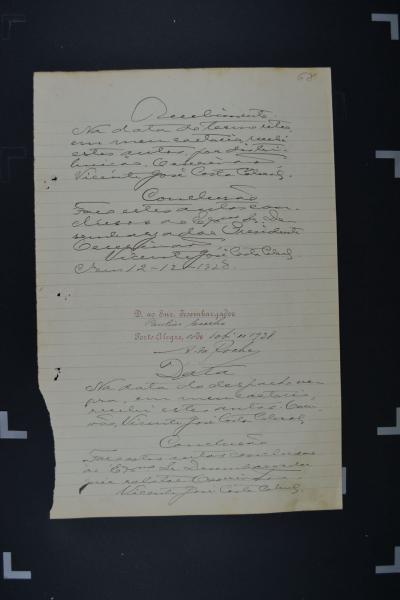 68
Recebimento
Na data do termo retro,
em meu cartorio, recebi
estes autos por distri-
buição. O escrivão
Vicente José Costa Cabral
Conclusão
Faço estes autos con-
clusos ao Exmo Sr. De-
sembargador Presidente
O escrivão
Vicente José Costa Cabral
Em 12-12-1928
D. ao Snr. Desembargador
Porto Alegre, de de 1928
A. da Rocha
Data
Na data do despacho su-
pra, em meu cartorio,
recebi estes autos. O escri-
vão, Vicente José Costa Cabral
Conclusão
Faço estes autos conclusos
ao Exmo Sr. Desembargador
Vicente José Costa Cabral